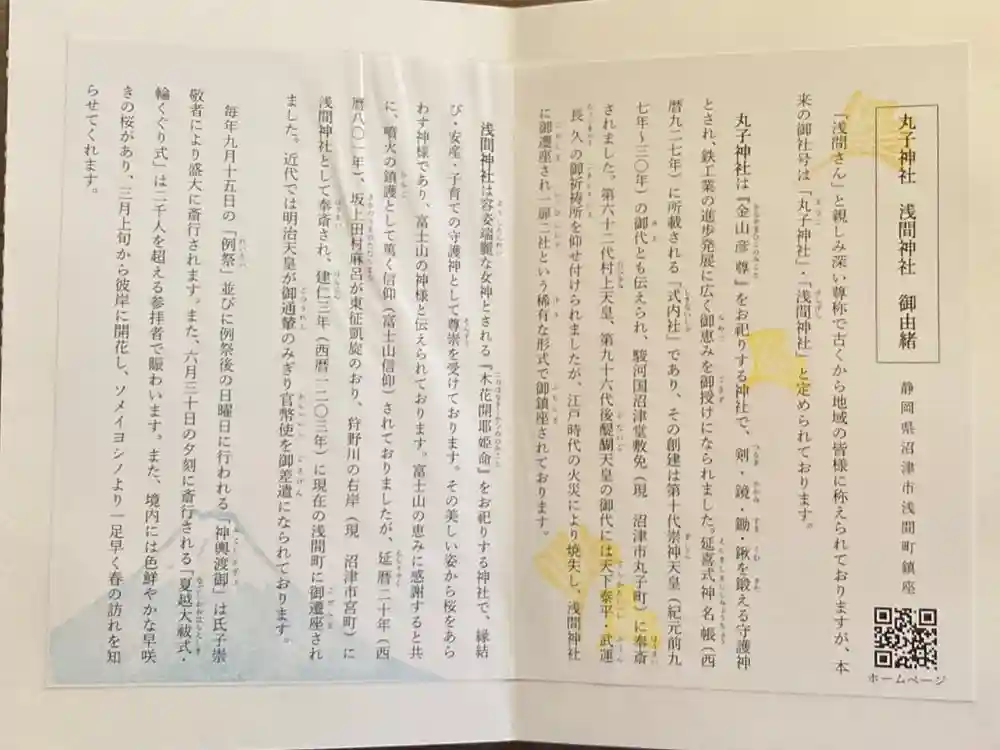 丸子神社 浅間神社 御由緒
静岡県沼津市浅間町鎮座
ホームページ
「浅間さん」と親しみ深い尊称で古くから地域の皆様に称えられておりますが、本
来の御社号は「丸子神社」・「浅間神社」と定められております。
丸子神社は『金山彦尊』をお祀りする神社で、剣・鏡・鋤・鍬を鍛える守護神
とされ、鉄工業の進歩発展に広く御恵みを御授けになられました。延喜式神名帳(西
暦九二七年)に所載される「式内社」であり、その創建は第十代崇神天皇(紀元前九
七年~三〇年)の御代とも伝えられ、駿河国沼津堂敷免(現 沼津市丸子町)に奉斎
されました。第六十二代村上天皇、第九十六代後醍醐天皇の御代には天下泰平・武運
長久の御祈祷所を仰せ付けられましたが、江戸時代の火災により焼失し、浅間神社
に御遷座され一扉二社という稀有な形式で御鎮座されております。
浅間神社は容姿端麗な女神とされる『木花開耶姫命』をお祀りする神社で、縁結
び・安産・子育ての守護神として尊崇を受けております。その美しい姿から桜をあら
わす神様であり、富士山の神様と伝えられております。富士山の恵みに感謝すると共
に、噴火の鎮護として篤く信仰(富士山信仰)されておりましたが、延暦二十年(西
暦八〇一年)、坂上田村麻呂が東征凱旋のおり、狩野川の右岸(現 沼津市宮町)に
浅間神社として奉斎され、建仁三年(西暦一二〇三年)に現在の浅間町に御遷座され
ました。近代では明治天皇が御通輦のみぎり官幣使を御差遣になられております。
毎年九月十五日の「例祭」並びに例祭後の日曜日に行われる「神輿渡御」は氏子崇
敬者により盛大に斎行されます。また、六月三十日の夕刻に斎行される「夏越大祓式・
輪くぐり式」は二千人を超える参拝者で賑わいます。また、境内には色鮮やかな早咲
きの桜があり、三月上旬から彼岸に開花し、ソメイヨシノより一足早く春の訪れを知
らせてくれます。